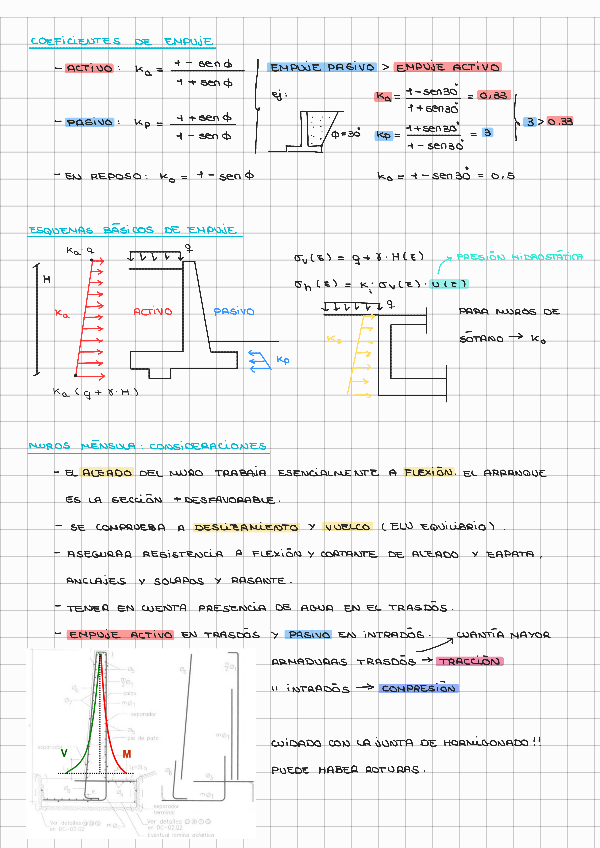 COEFICIENTES DE EMPUJE
- ACTIVO: Ka = 1 - senϕ / 1 + senϕ
- PASIVO: Kp = 1 + senϕ / 1 - senϕ
- EN REPOSO: Ko = 1 - senϕ
EMPUJE PASIVO > EMPUJE ACTIVO
ej:
ϕ=30°
Ka = 1 - sen30° / 1 + sen30° = 0.33
Kp = 1 + sen30° / 1 - sen30° = 3
3 > 0.33
Ko = 1 - sen30° = 0.5
ESQUEMAS BÁSICOS DE EMPUJE
Ka · q
q
H
Ka
ACTIVO
PASIVO
Kp
Ka (q + γ · H)
σv(z) = q + γ · H(z)
PRESIÓN HIDROSTÁTICA
σh(z) = Ki · σv(z) · U(z)
q
Ko
PARA MUROS DE
SÓTANO → Ko
MUROS MÉNSULA: CONSIDERACIONES
- EL ALZADO DEL MURO TRABAJA ESENCIALMENTE A FLEXIÓN. EL ARRANQUE
ES LA SECCIÓN + DESFAVORABLE.
- SE COMPRUEBA A DESLIZAMIENTO Y VUELCO (ELU EQUILIBRIO).
- ASEGURAR RESISTENCIA A FLEXIÓN Y CORTANTE DE ALZADO Y ZAPATA,
ANCLAJES Y SOLAPOS Y RASANTE.
- TENER EN CUENTA PRESENCIA DE AGUA EN EL TRASDÓS.
- EMPUJE ACTIVO EN TRASDÓS Y PASIVO EN INTRADÓS.
CUANTÍA MAYOR
ARMADURAS TRASDÓS → TRACCIÓN
" INTRADÓS → COMPRESIÓN
CUIDADO CON LA JUNTA DE HORMIGONADO!!
PUEDE HABER ROTURAS.
V
M
separador
pie de pato
separador
terminal
Ver detalles
en DC-02.02
Ver. detalles
en DC-02.02